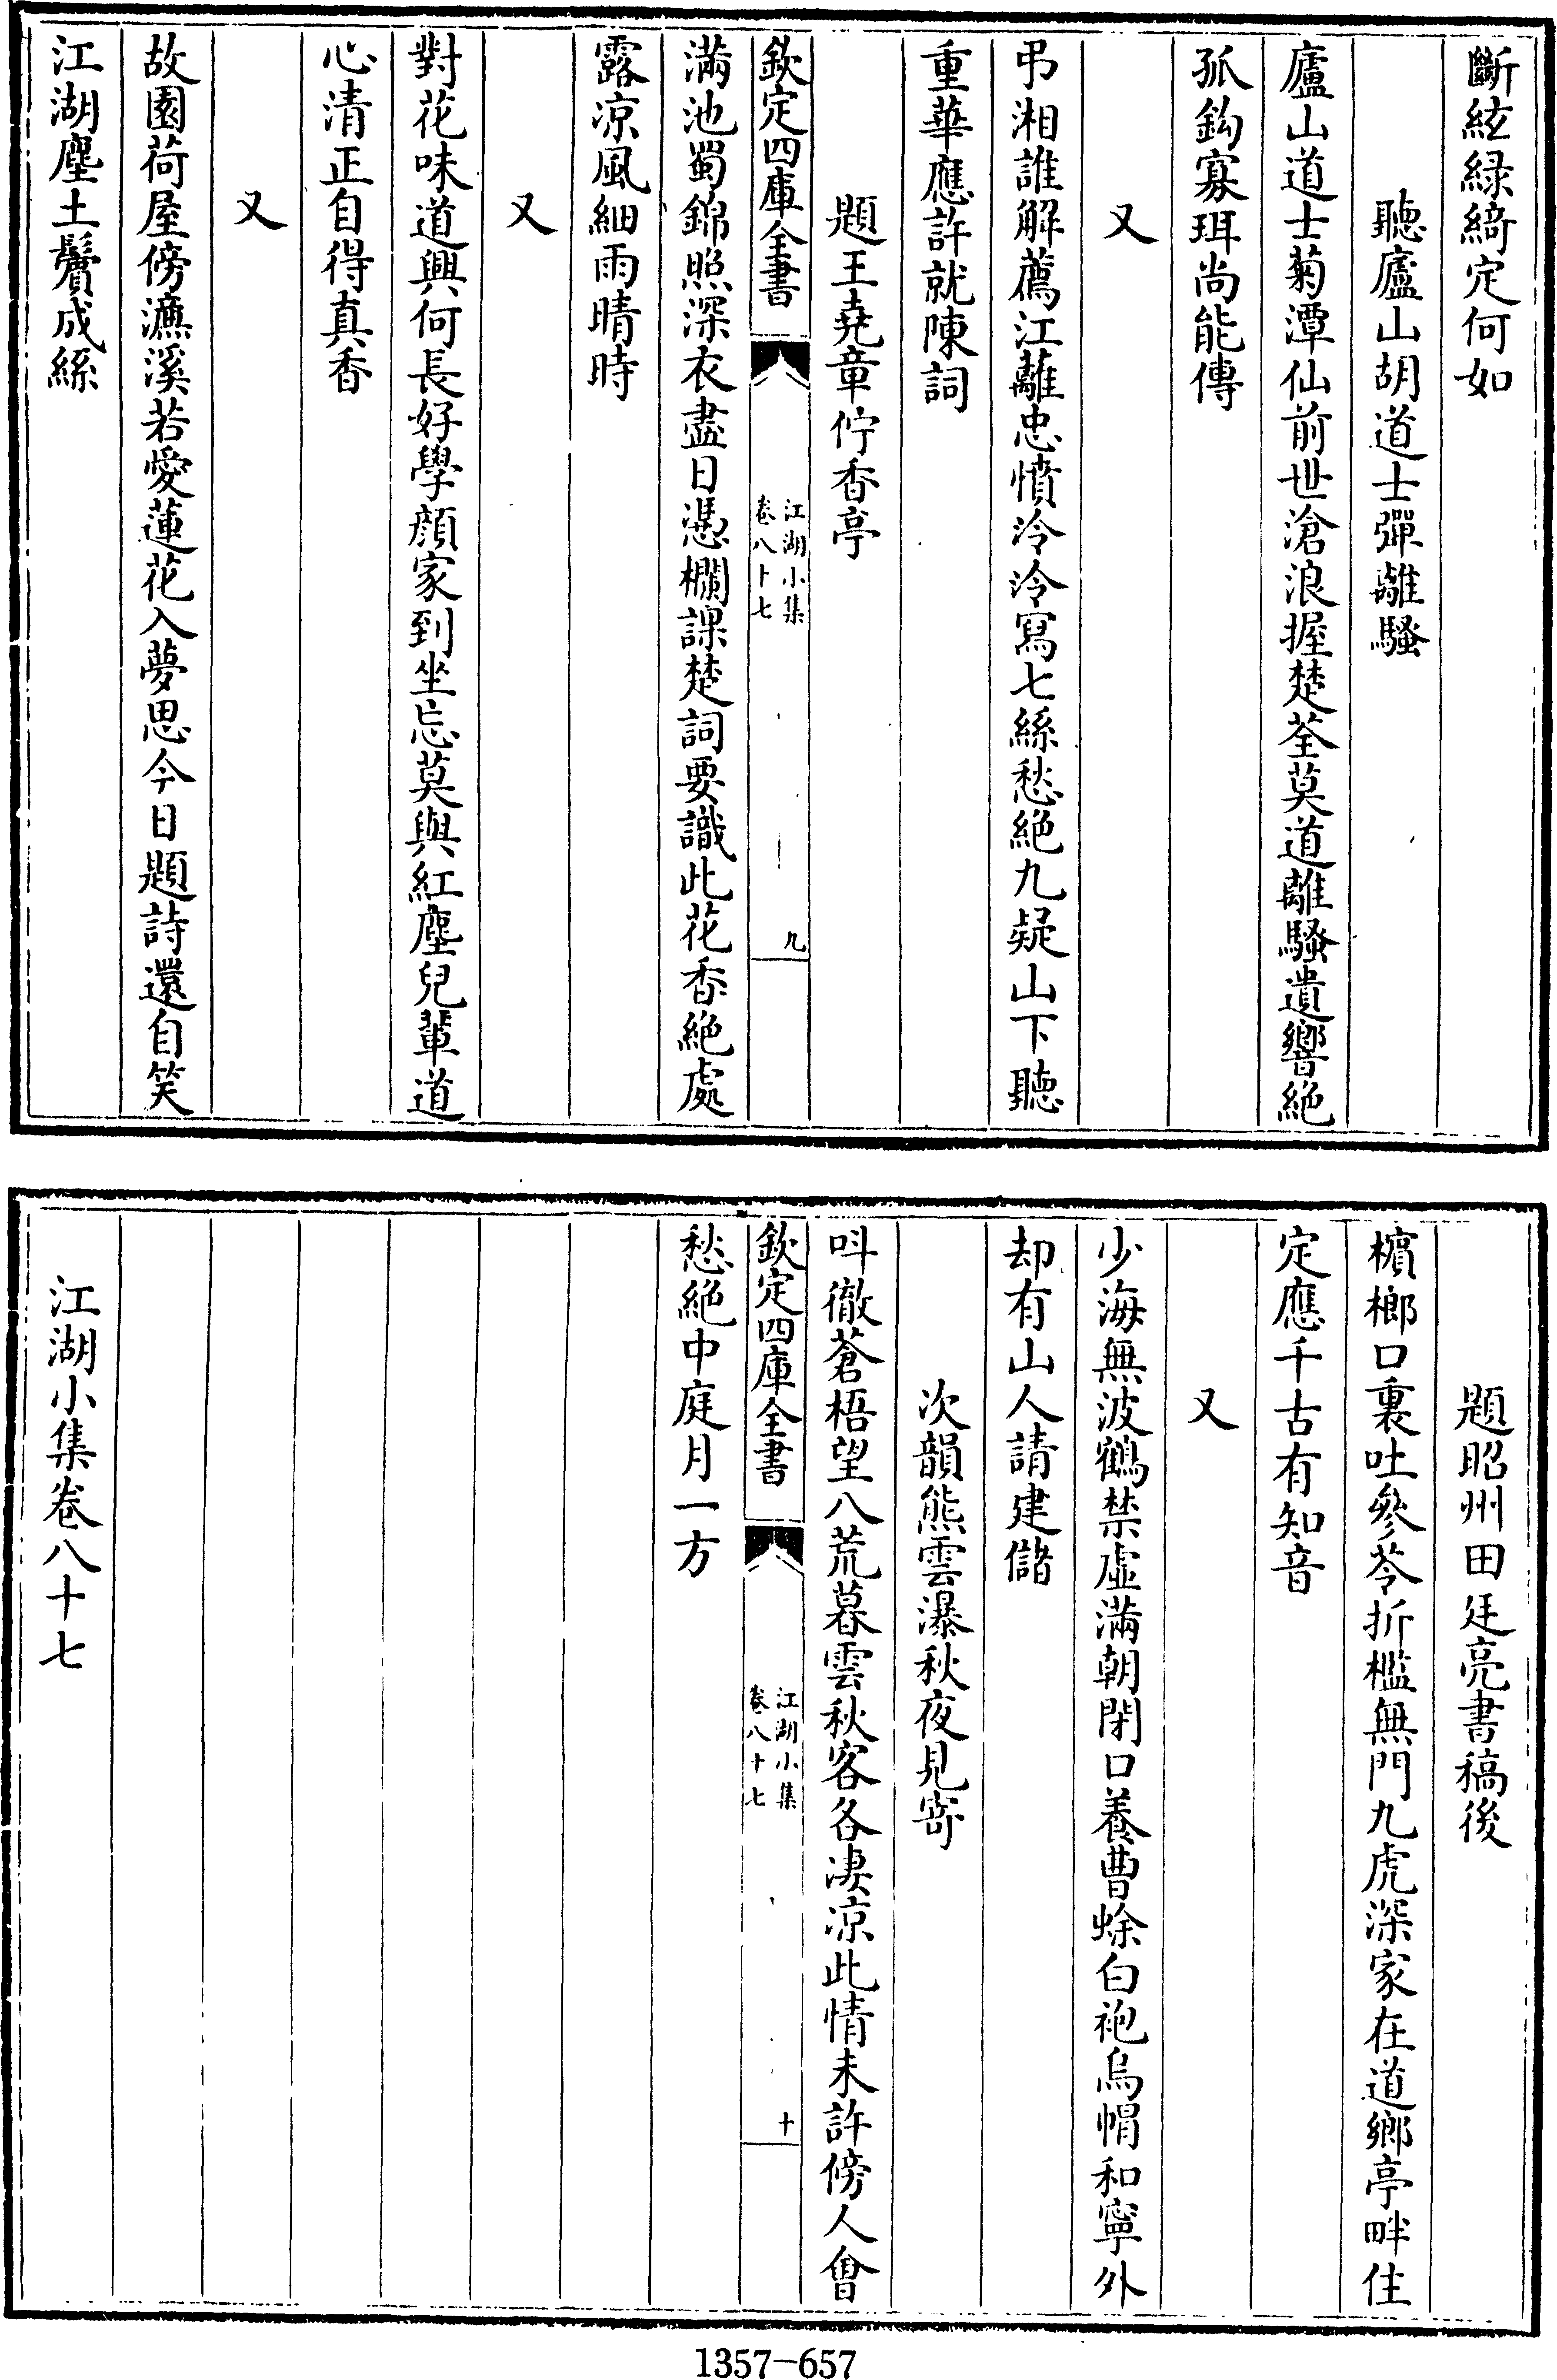 斷絃緑綺定何如
聽廬山胡道士彈離騷
廬山道士菊潭仙前世滄浪握楚荃莫道離騷遺響絶
孤鈎寡珥尚能傳
又
弔湘誰解薦江蘺忠憤泠泠寫七絲愁絶九疑山下聽
重華應許就陳詞
題王堯章佇香亭
欽定四庫全書
江湖小集
卷八十七
九
滿池蜀錦照深衣盡日憑欄課楚詞要識此花香絶處
露凉風細雨晴時
又
對花味道興何長好學顔家到坐忘莫與紅塵兒輩道
心清正自得真香
又
故園荷屋傍濂溪若愛蓮花入夢思今日題詩還自笑
江湖塵土鬢成絲
題昭州田廷亮書稿後
檳榔口裏吐參苓折檻無門九虎深家在道鄉亭畔住
定應千古有知音
又
少海無波鶴禁虛滿朝閉口養曹蜍白袍烏帽和寧外
却有山人請建儲
次韻熊雲瀑秋夜見寄
呌徹蒼梧望八荒暮雲秋客各淒凉此情未許傍人會
欽定四庫全書
江湖小集
卷八十七
十
愁絶中庭月一方
江湖小集卷八十七
1357-657